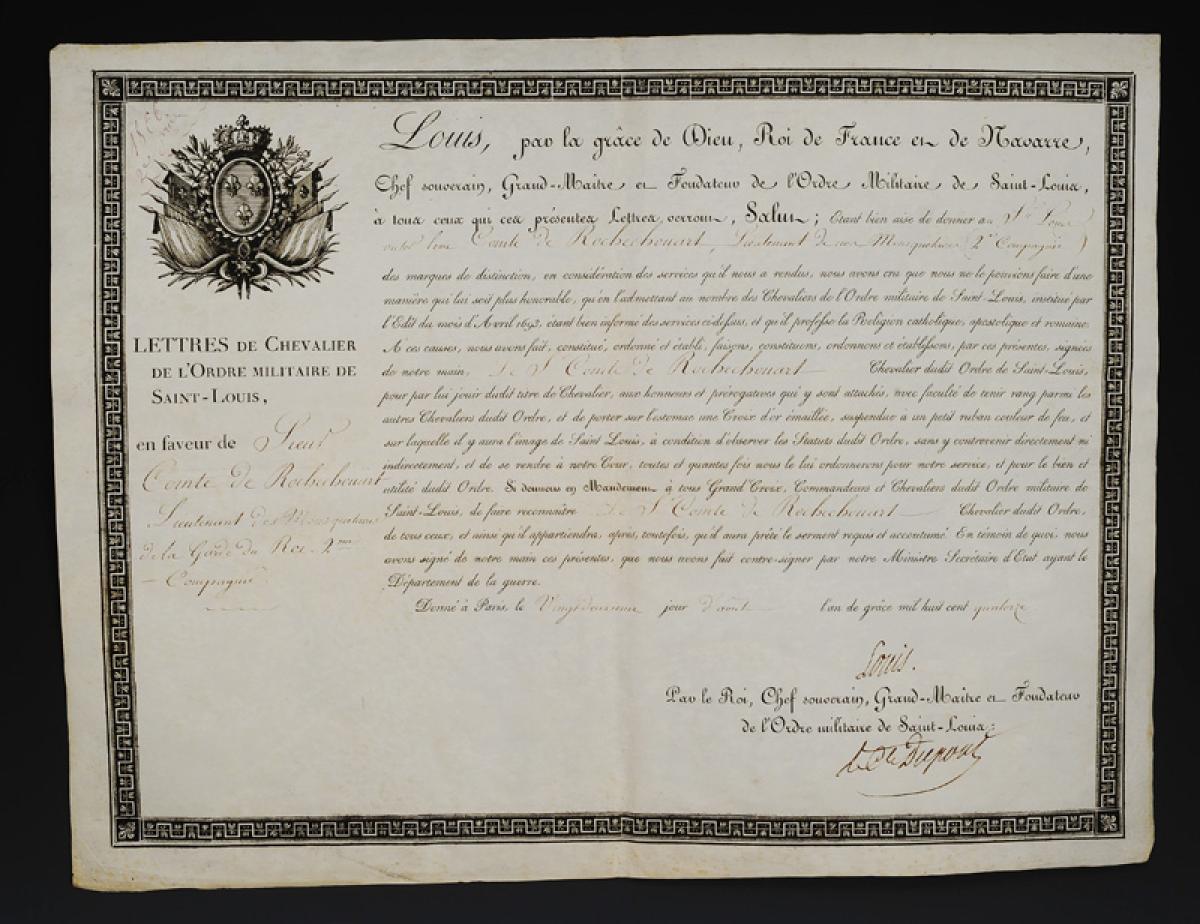 LETTRES DE CHEVALIER
DE L'ORDRE MILITAIRE DE
SAINT-LOUIS,
en faveur de Sieur
Comte de Rochechouart
Lieutenant des Mousquetaires
de la Garde du Roi 2me
Compagnie
Louis, par la grâce de Dieu, Roi de France et de Navarre,
Chef souverain, Grand-Maître et Fondateur de l'Ordre Militaire de Saint-Louis,
à tous ceux qui ces présentes Lettres verront, Salut; Etant bien aise de donner au Sr Louis
Comte de Rochechouart, Lieutenant de nos Mousquetaires (2e Compagnie)
des marques de distinction, en considération des services qu'il nous a rendus, nous avons cru que nous ne le pouvions faire d'une
manière qui lui soit plus honorable, qu'en l'admettant au nombre des Chevaliers de l'Ordre militaire de Saint-Louis, institué par
l'Edit du mois d'Avril 1693, étant bien informé des services ci-dessus, et qu'il professe la Religion catholique, apostolique et romaine.
A ces causes, nous avons fait, constitué, ordonné et établi, faisons, constituons, ordonnons et établissons, par ces présentes, signées
de notre main, Le Sr Comte de Rochechouart Chevalier dudit Ordre de Saint-Louis,
pour par lui jouir dudit titre de Chevalier, aux honneurs et prérogatives qui y sont attachés, avec faculté de tenir rang parmi les
autres Chevaliers dudit Ordre, et de porter sur l'estomac une Croix d'or émaillée, suspendue à un petit ruban couleur de feu, et
sur laquelle il y aura l'image de Saint Louis, à condition d'observer les Statuts dudit Ordre, sans y contrevenir directement ni
indirectement, et de se rendre à notre Cour, toutes et quantes fois nous le lui ordonnerons pour notre service, et pour le bien et
utilité dudit Ordre. Si donnons en Mandement à tous Grand'Croix, Commandeurs et Chevaliers dudit Ordre militaire de
Saint-Louis, de faire reconnoître Le Sr Comte de Rochechouart Chevalier dudit Ordre,
de tous ceux, et ainsi qu'il appartiendra, après, toutefois, qu'il aura prêté le serment requis et accoutumé. En témoin de quoi, nous
avons signé de notre main ces présentes, que nous avons fait contre-signer par notre Ministre Secrétaire d'Etat ayant le
Département de la guerre.
Donné à Paris, le Vingt deuxieme jour d'août l'an de grâce mil huit cent quatorze
Louis.
Par le Roi, Chef souverain, Grand-Maître et Fondateur
de l'Ordre militaire de Saint-Louis:
le Cte Dupont